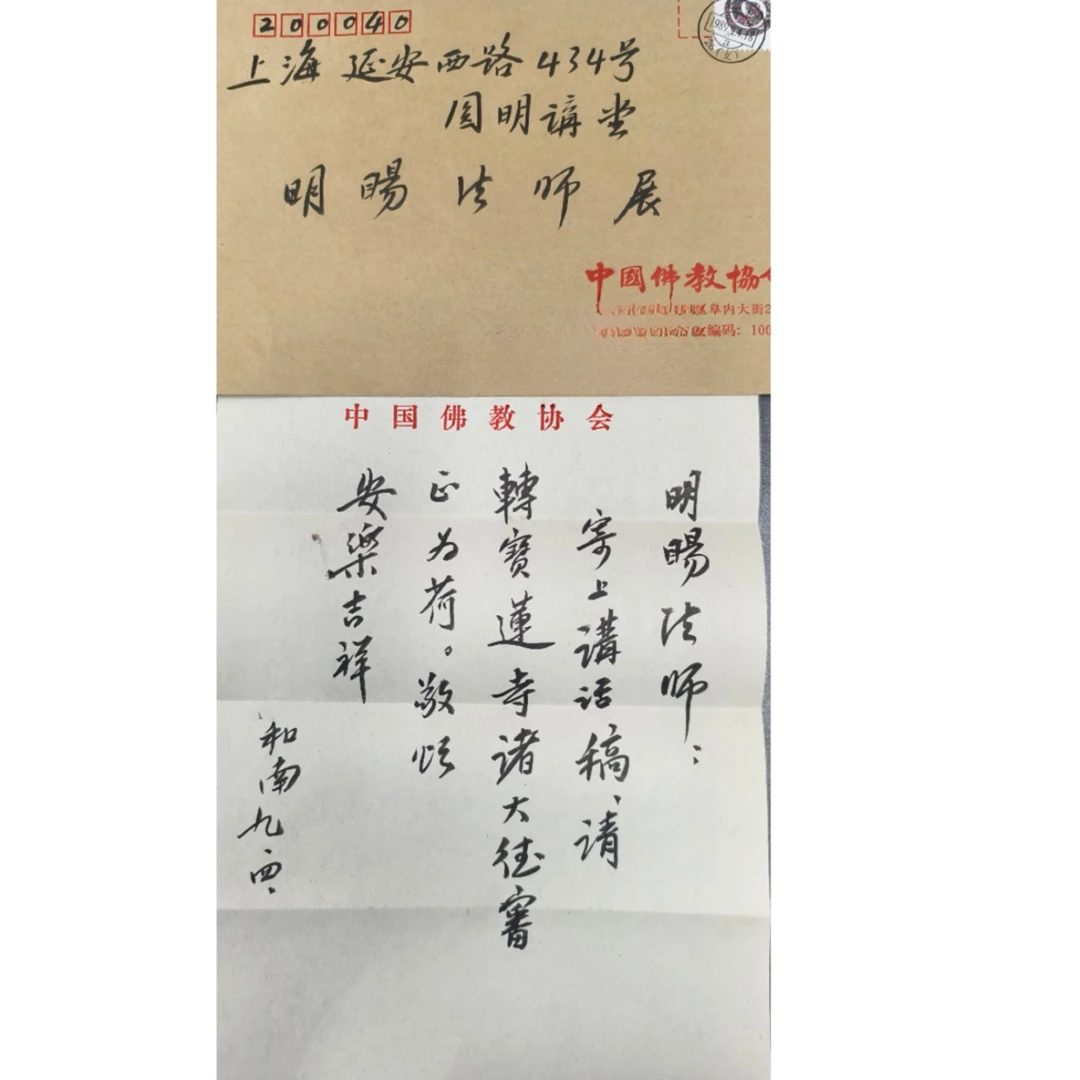 200040
上海 延安西路434号
圆明講堂
明暘法师展
中國佛教協
阜内大街2
编码：100
中国佛教协会
明暘法师：
寄上講话稿、请
轉寶蓮寺諸大德審
正为荷。敬颂
安樂吉祥
和南九